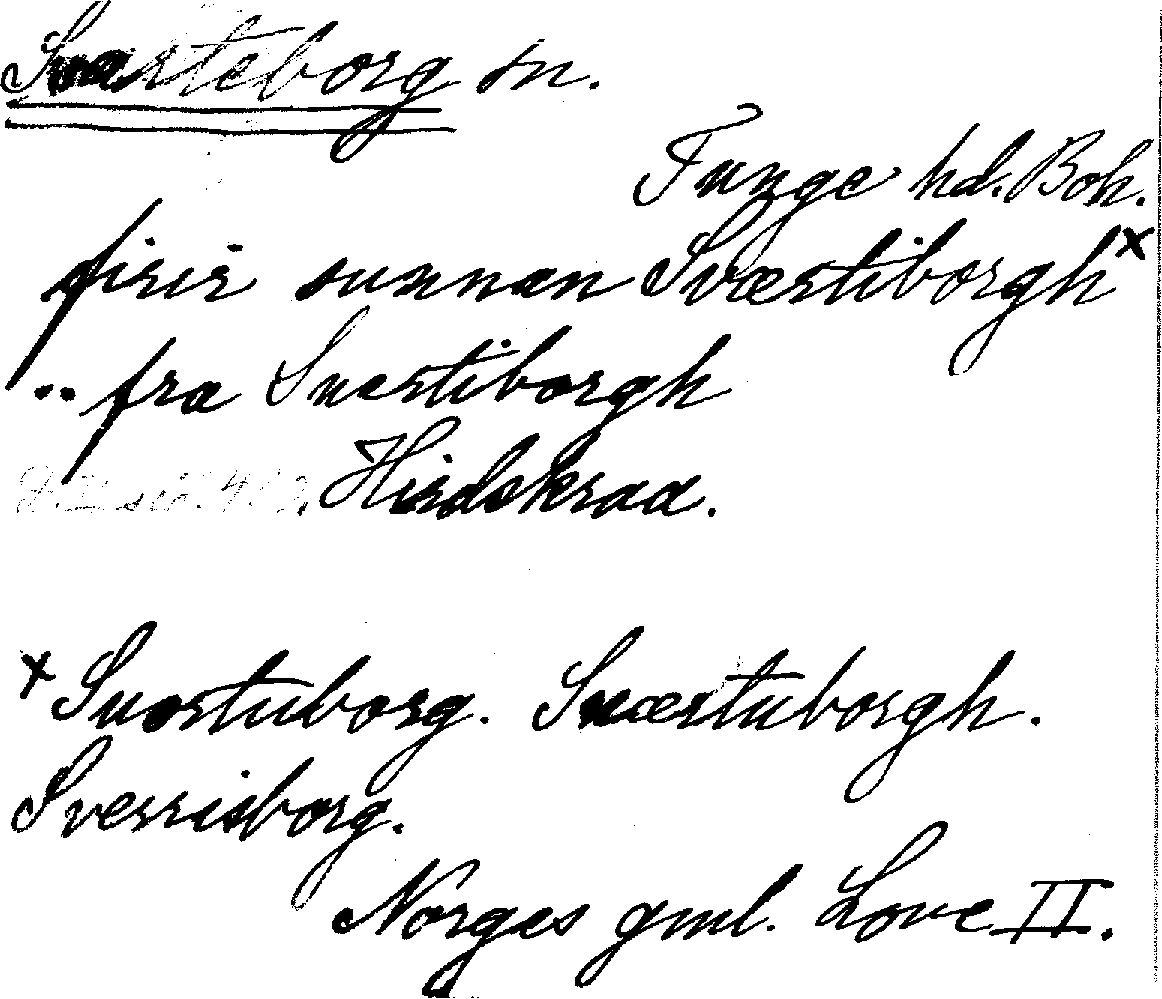 Svarteborg sn.
Tunge hd. Boh.
firir sunnan Sværtiborgh x
.. fra Suertiborgh
Hirdskraa.
x Suortuborg. Suærtuborgh.
Sverrisborg.
Norges gml. Love II.